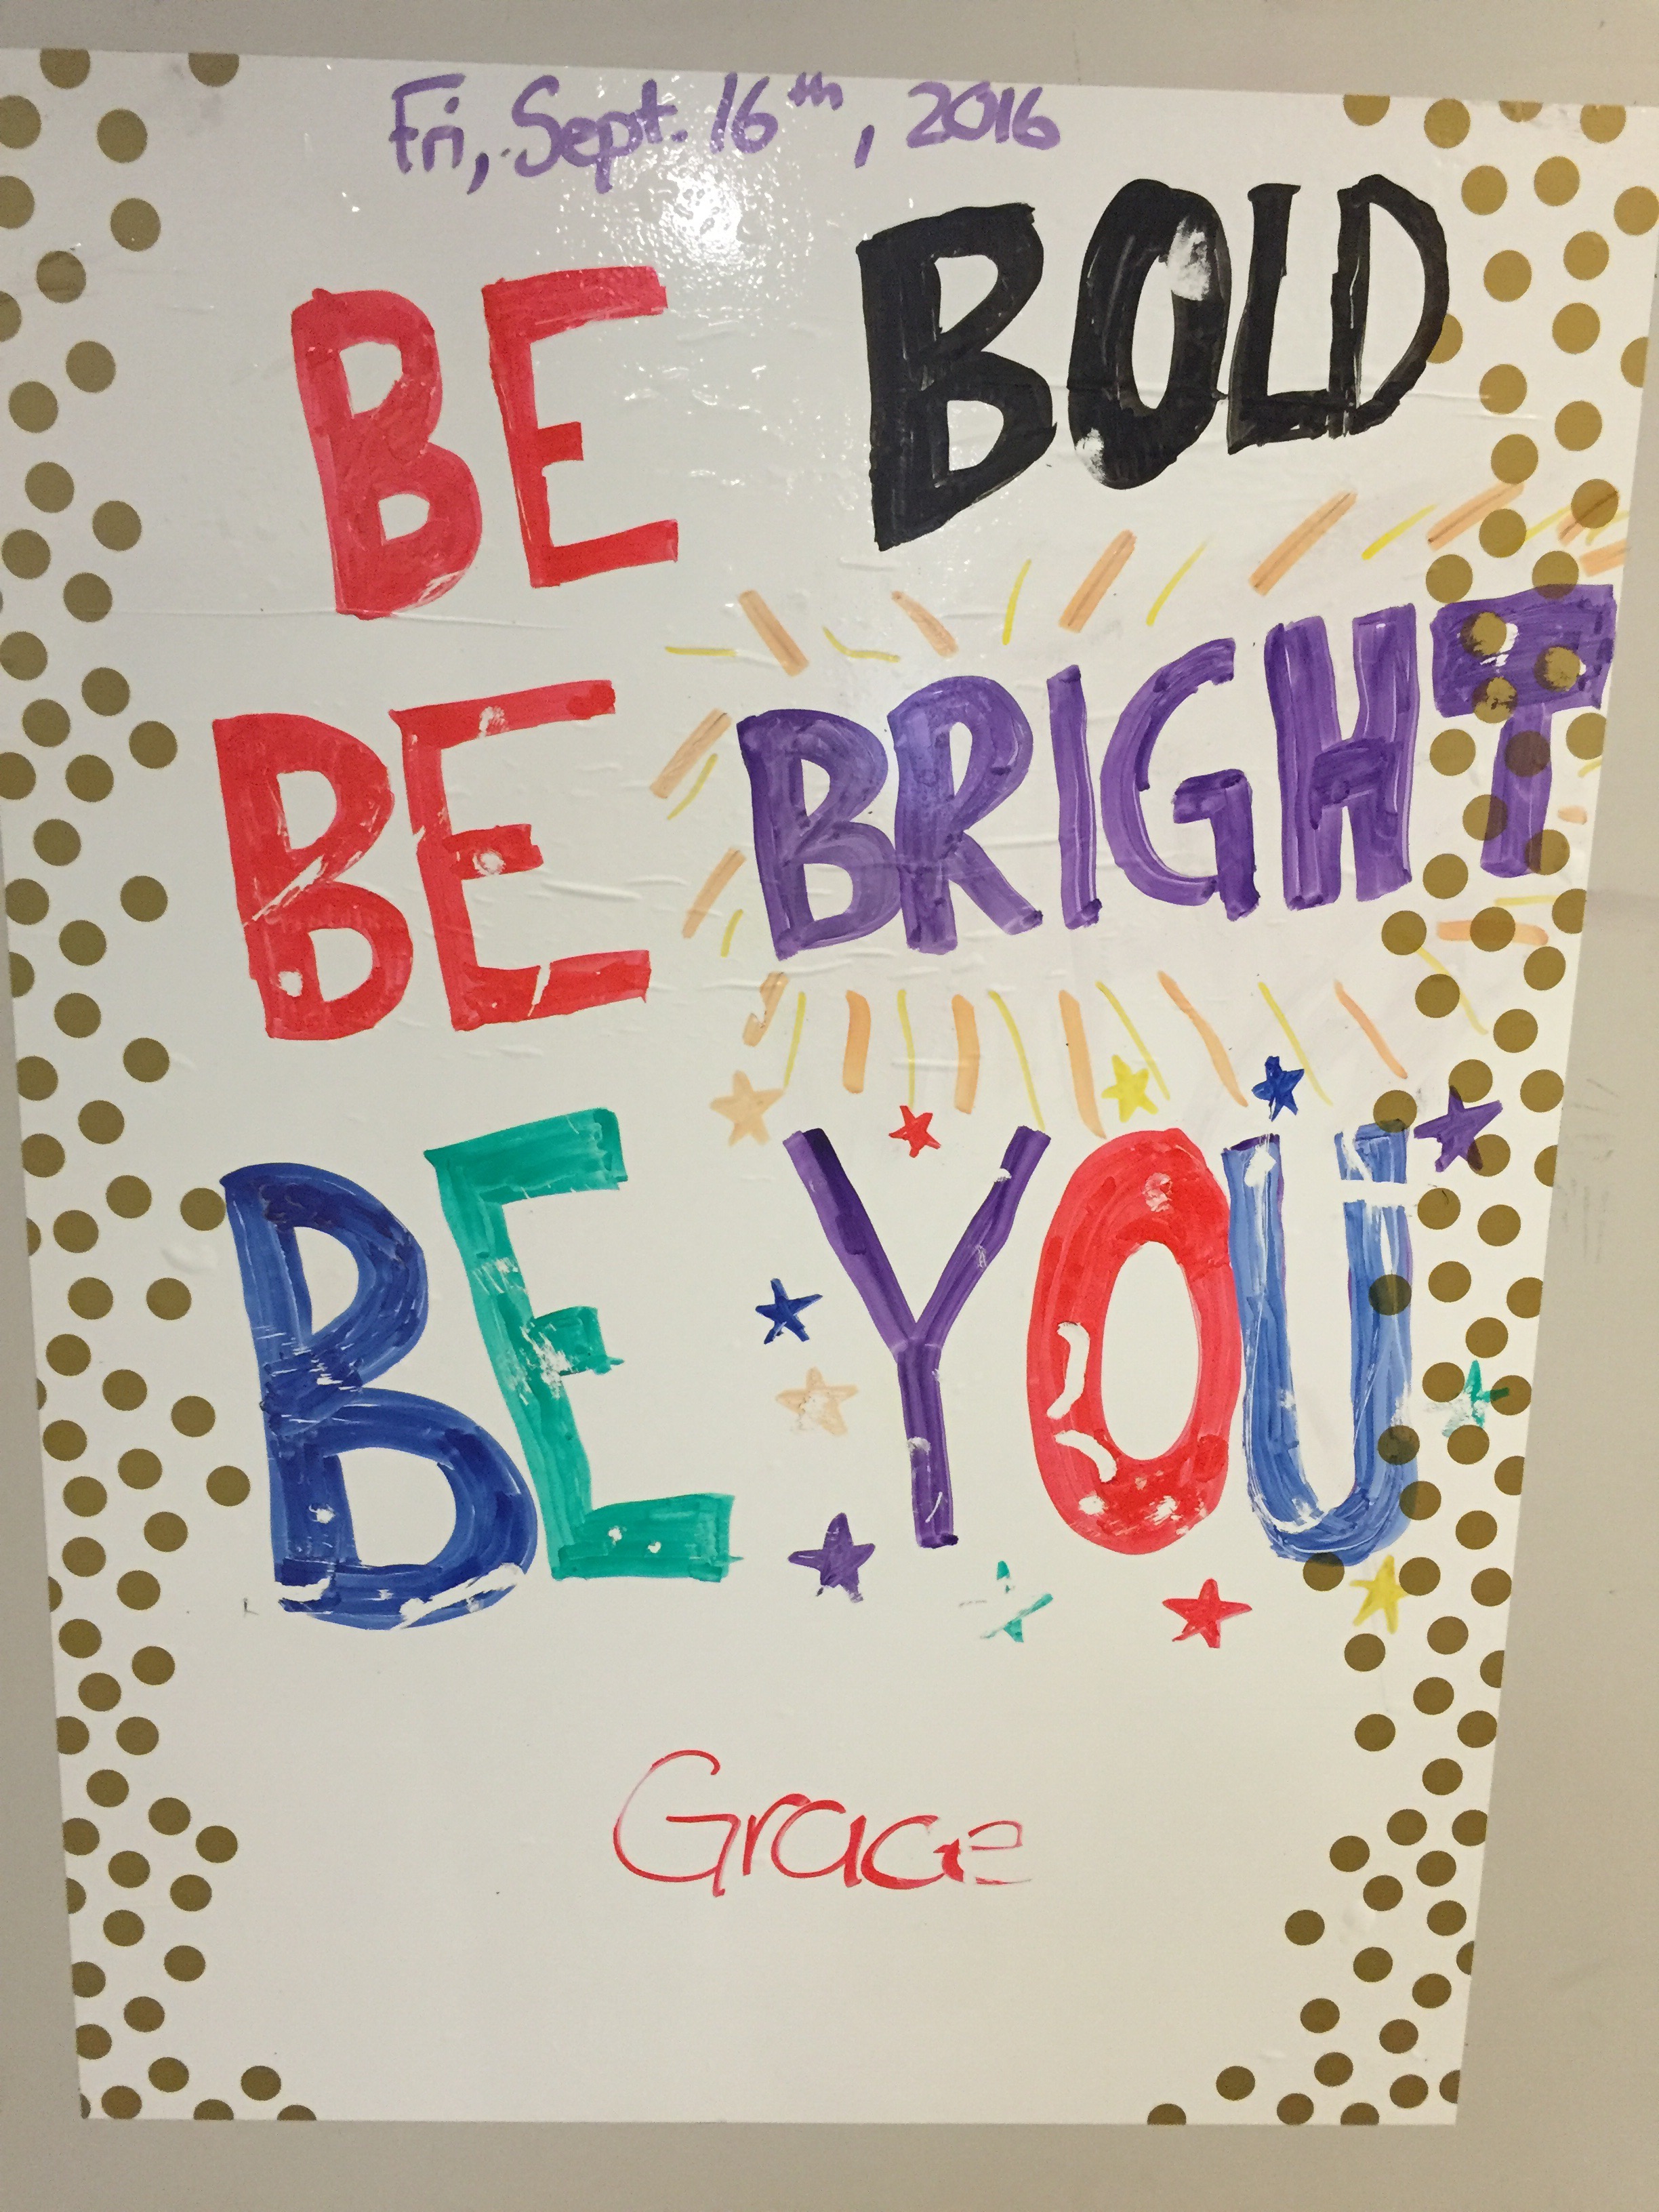 Fri, Sept. 16th, 2016
BE BOLD
BE BRIGHT
BE YOU
Grace